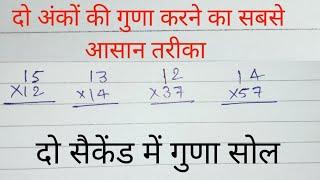 दो अंकों की गुणा करने का सबसे
आसान तरीका
15 13 12 14
×12 ×14 ×37 ×57
दो सैकेंड में गुणा सोल